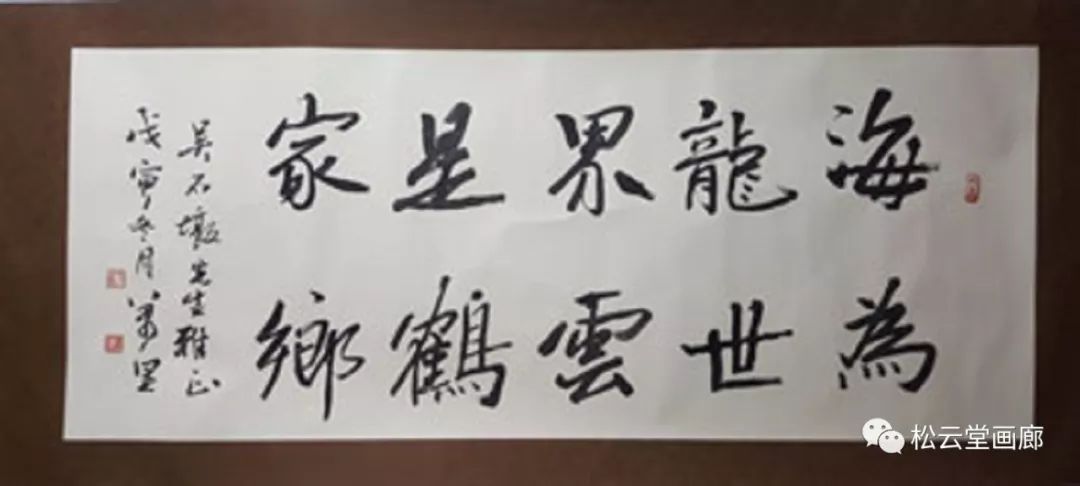 海為
龍世
界雲
是鶴
家鄉
吳石先生雅正
戊寅冬月
松云堂画廊